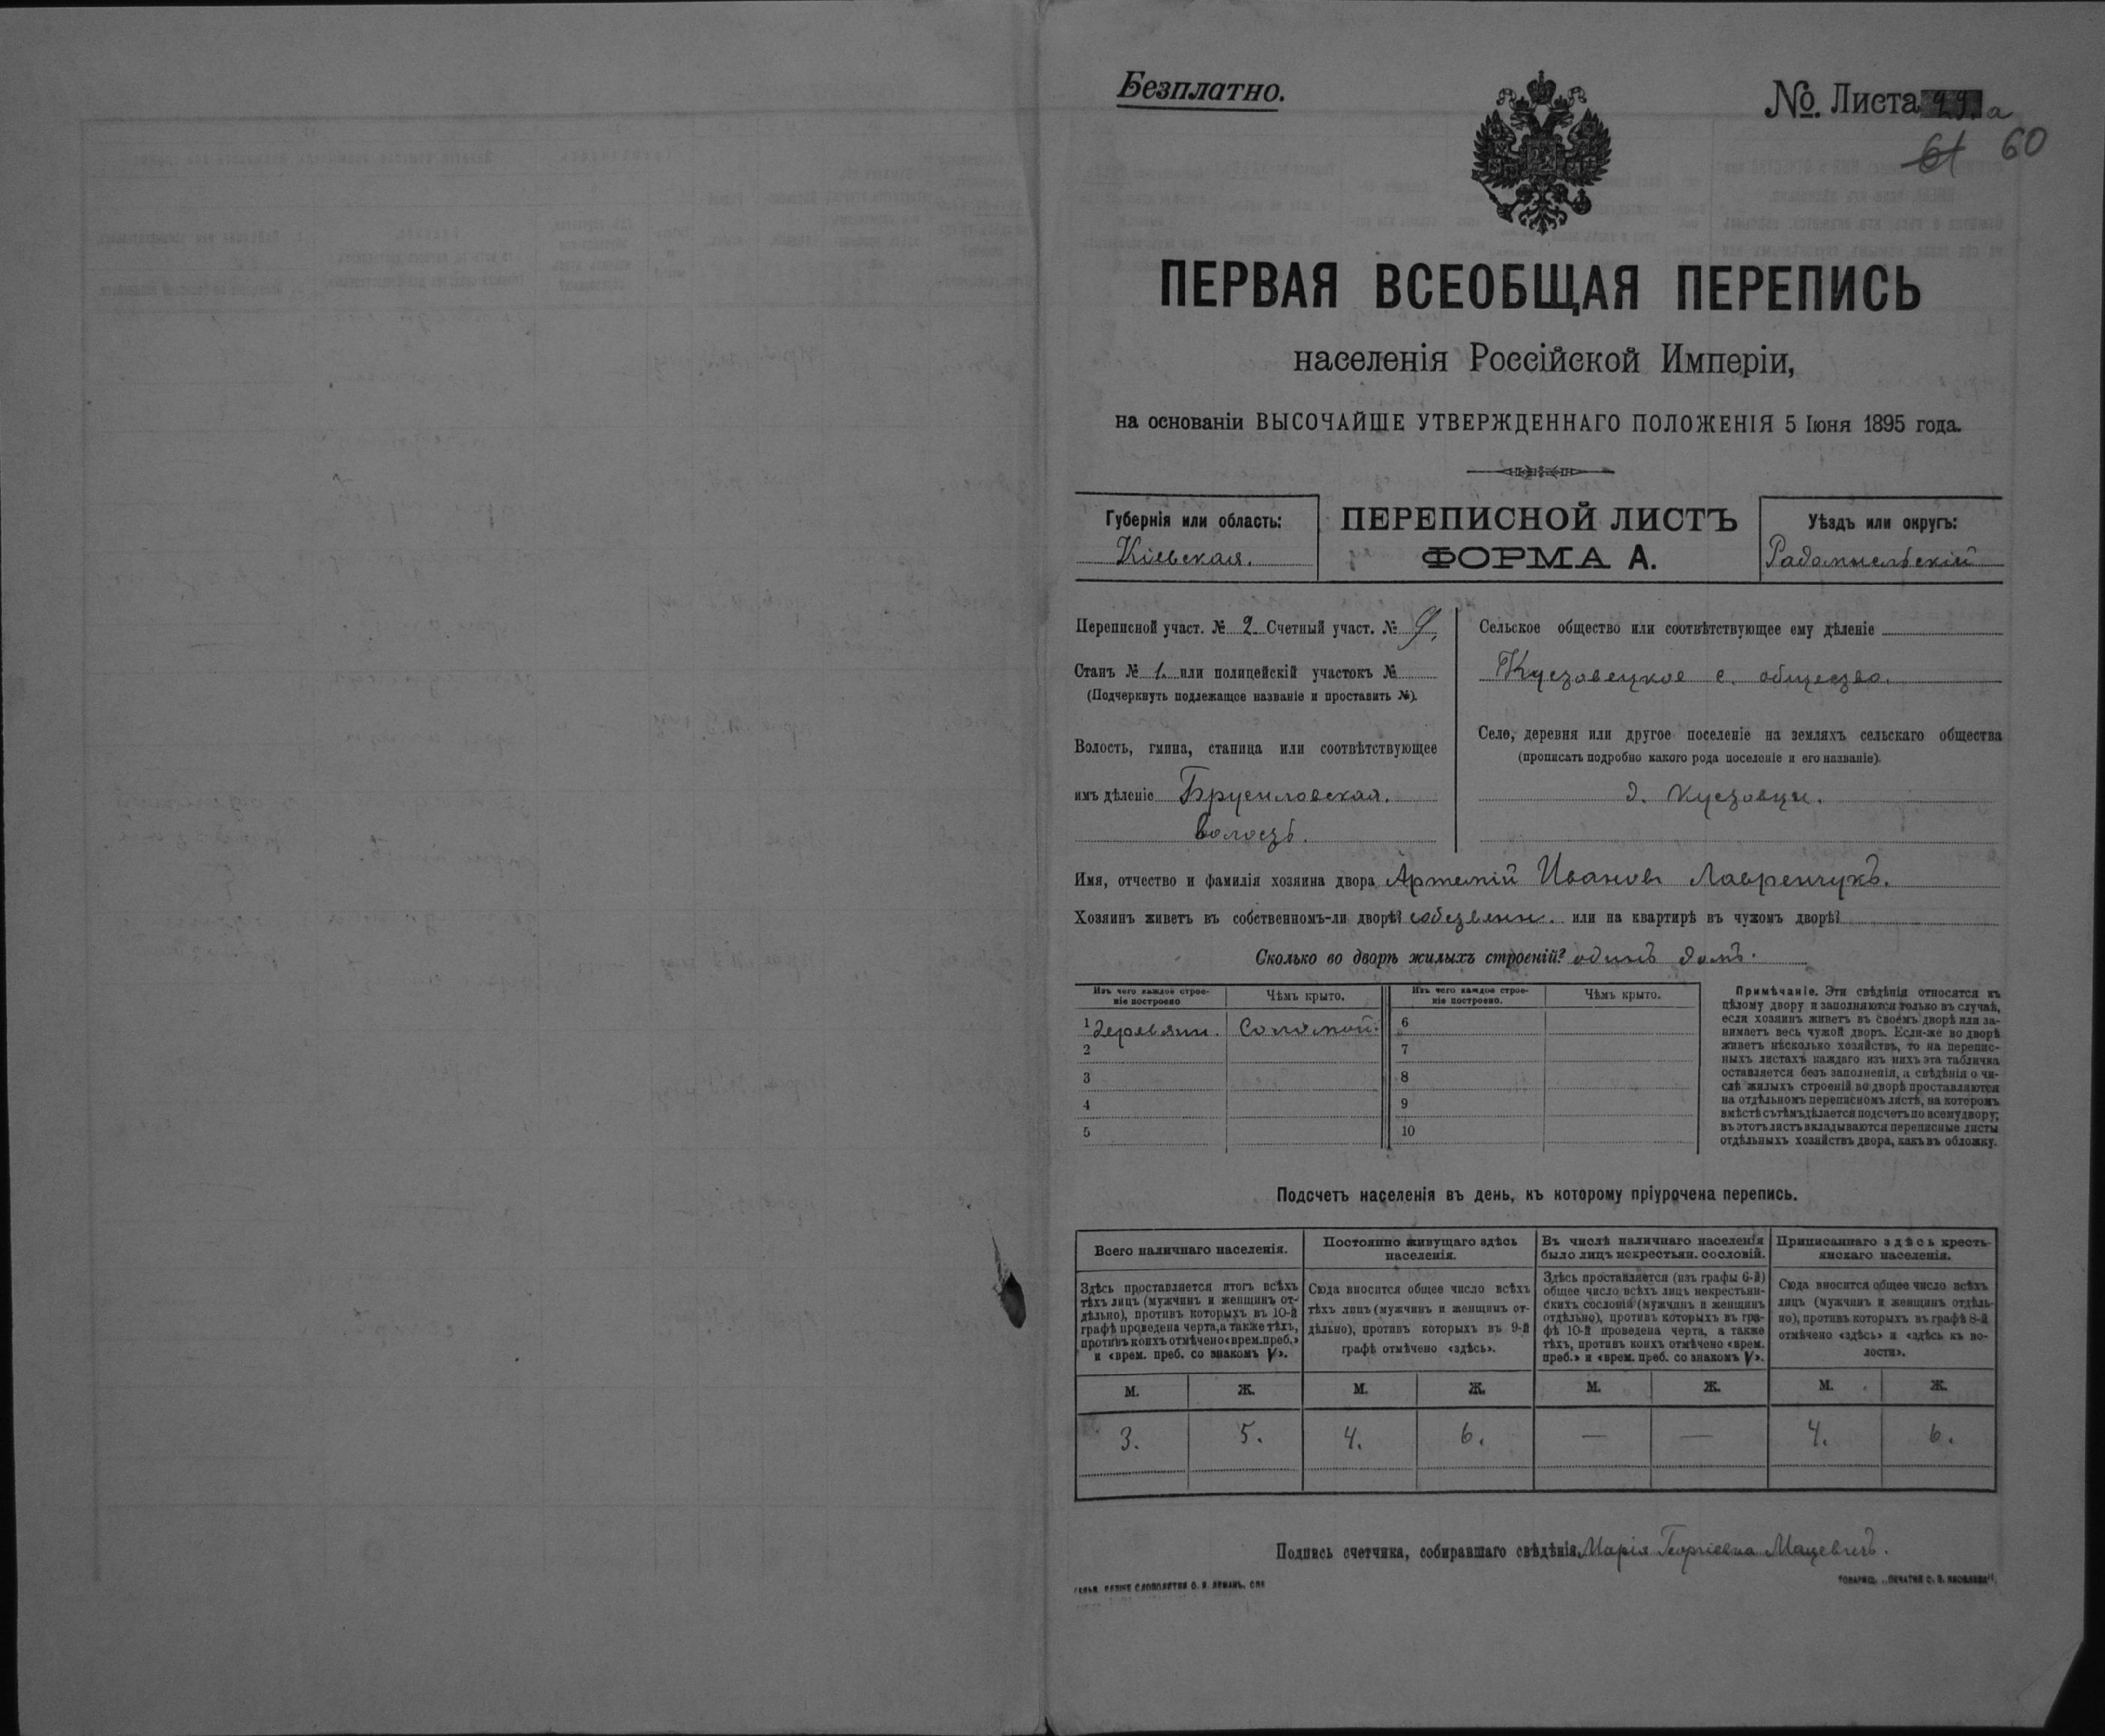 Безплатно.
№. Листа 29. а
61 60
ПЕРВАЯ ВСЕОБЩАЯ ПЕРЕПИСЬ
населенія Россійской Имперіи,
на основаніи ВЫСОЧАЙШЕ УТВЕРЖДЕННАГО ПОЛОЖЕНІЯ 5 Іюня 1895 года.
Губернія или область:
Кіевская.
ПЕРЕПИСНОЙ ЛИСТЪ
ФОРМА А.
Уѣздъ или округъ:
Радомысльскій
Переписной участ. № 2. Счетный участ. № 9.
Станъ № 1. или полицейскій участокъ №
(Подчеркнуть подлежащее названіе и проставить №).
Волость, гмина, станица или соотвѣтствующее
имъ дѣленіе Брусиловская.
волость.
Сельское общество или соотвѣтствующее ему дѣленіе
Кустовецкое с. общество.
Село, деревня или другое поселеніе на земляхъ сельскаго общества
(прописать подробно какого рода поселеніе и его названіе).
д. Кустовцы.
Имя, отчество и фамилія хозяина двора Артемій Ивановъ Лавренчукъ.
Хозяинъ живетъ въ собственномъ-ли дворѣ? собствен. или на квартирѣ въ чужомъ дворѣ?
Сколько во дворѣ жилыхъ строеній? одинъ домъ.
Изъ чего каждое строе-
ніе построено
Чѣмъ крыто.
Изъ чего каждое строе-
ніе построено.
Чѣмъ крыто.
1 деревянн. Соломой. 6
2 7
3 8
4 9
5 10
Примѣчаніе. Эти свѣдѣнія относятся къ
цѣлому двору и заполняются только въ случаѣ,
если хозяинъ живетъ въ своемъ дворѣ или за-
нимаетъ весь чужой дворъ. Если-же во дворѣ
живетъ нѣсколько хозяйствъ, то на перепис-
ныхъ листахъ каждаго изъ нихъ эта табличка
оставляется безъ заполненія, а свѣдѣнія о чи-
слѣ жилыхъ строеній во дворѣ проставляются
на отдѣльномъ переписномъ листѣ, на которомъ
вмѣстѣ съ тѣмъ дѣлается подсчетъ по всему двору;
въ этотъ листъ вкладываются переписные листы
отдѣльныхъ хозяйствъ двора, какъ въ обложку.
Подсчетъ населенія въ день, къ которому пріурочена перепись.
Всего наличнаго населенія.
Постоянно живущаго здѣсь
населенія.
Въ числѣ наличнаго населенія
было лицъ некрестьян. сословій.
Приписаннаго здѣсь кресть-
янскаго населенія.
Здѣсь проставляется итогъ всѣхъ
тѣхъ лицъ (мужчинъ и женщинъ от-
дѣльно), противъ которыхъ въ 10-й
графѣ проведена черта, а также тѣхъ,
противъ коихъ отмѣчено «врем. преб.»
и «врем. преб. со знакомъ V».
Сюда вносится общее число всѣхъ
тѣхъ лицъ (мужчинъ и женщинъ от-
дѣльно), противъ которыхъ въ 9-й
графѣ отмѣчено «здѣсь».
Здѣсь проставляется (изъ графы 6-й)
общее число всѣхъ лицъ некрестьян-
скихъ сословій (мужчинъ и женщинъ
отдѣльно), противъ которыхъ въ гра-
фѣ 10-й проведена черта, а также
тѣхъ, противъ коихъ отмѣчено «врем.
преб.» и «врем. преб. со знакомъ V».
Сюда вносится общее число всѣхъ
лицъ (мужчинъ и женщинъ отдѣль-
но), противъ которыхъ въ графѣ 8-й
отмѣчено «здѣсь» и «здѣсь къ во-
лости».
М. Ж. М. Ж. М. Ж. М. Ж.
3. 5. 4. 6. — — 4. 6.
Подпись счетчика, собиравшаго свѣдѣнія Марія Георгіевна Мацевичъ.
СЛОВОЛИТНЯ О. И. ЛЕМАНЪ. СПБ
ТОВАРИЩ. „ПЕЧАТНЯ С. П. ЯКОВЛЕВА".